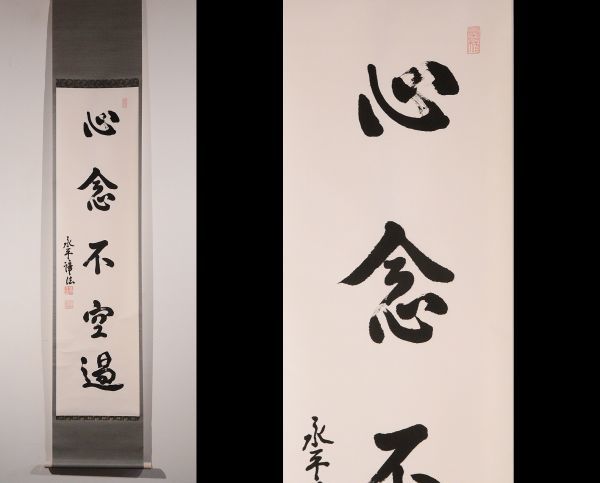 心念不空過
永平諦法
心念不
永平